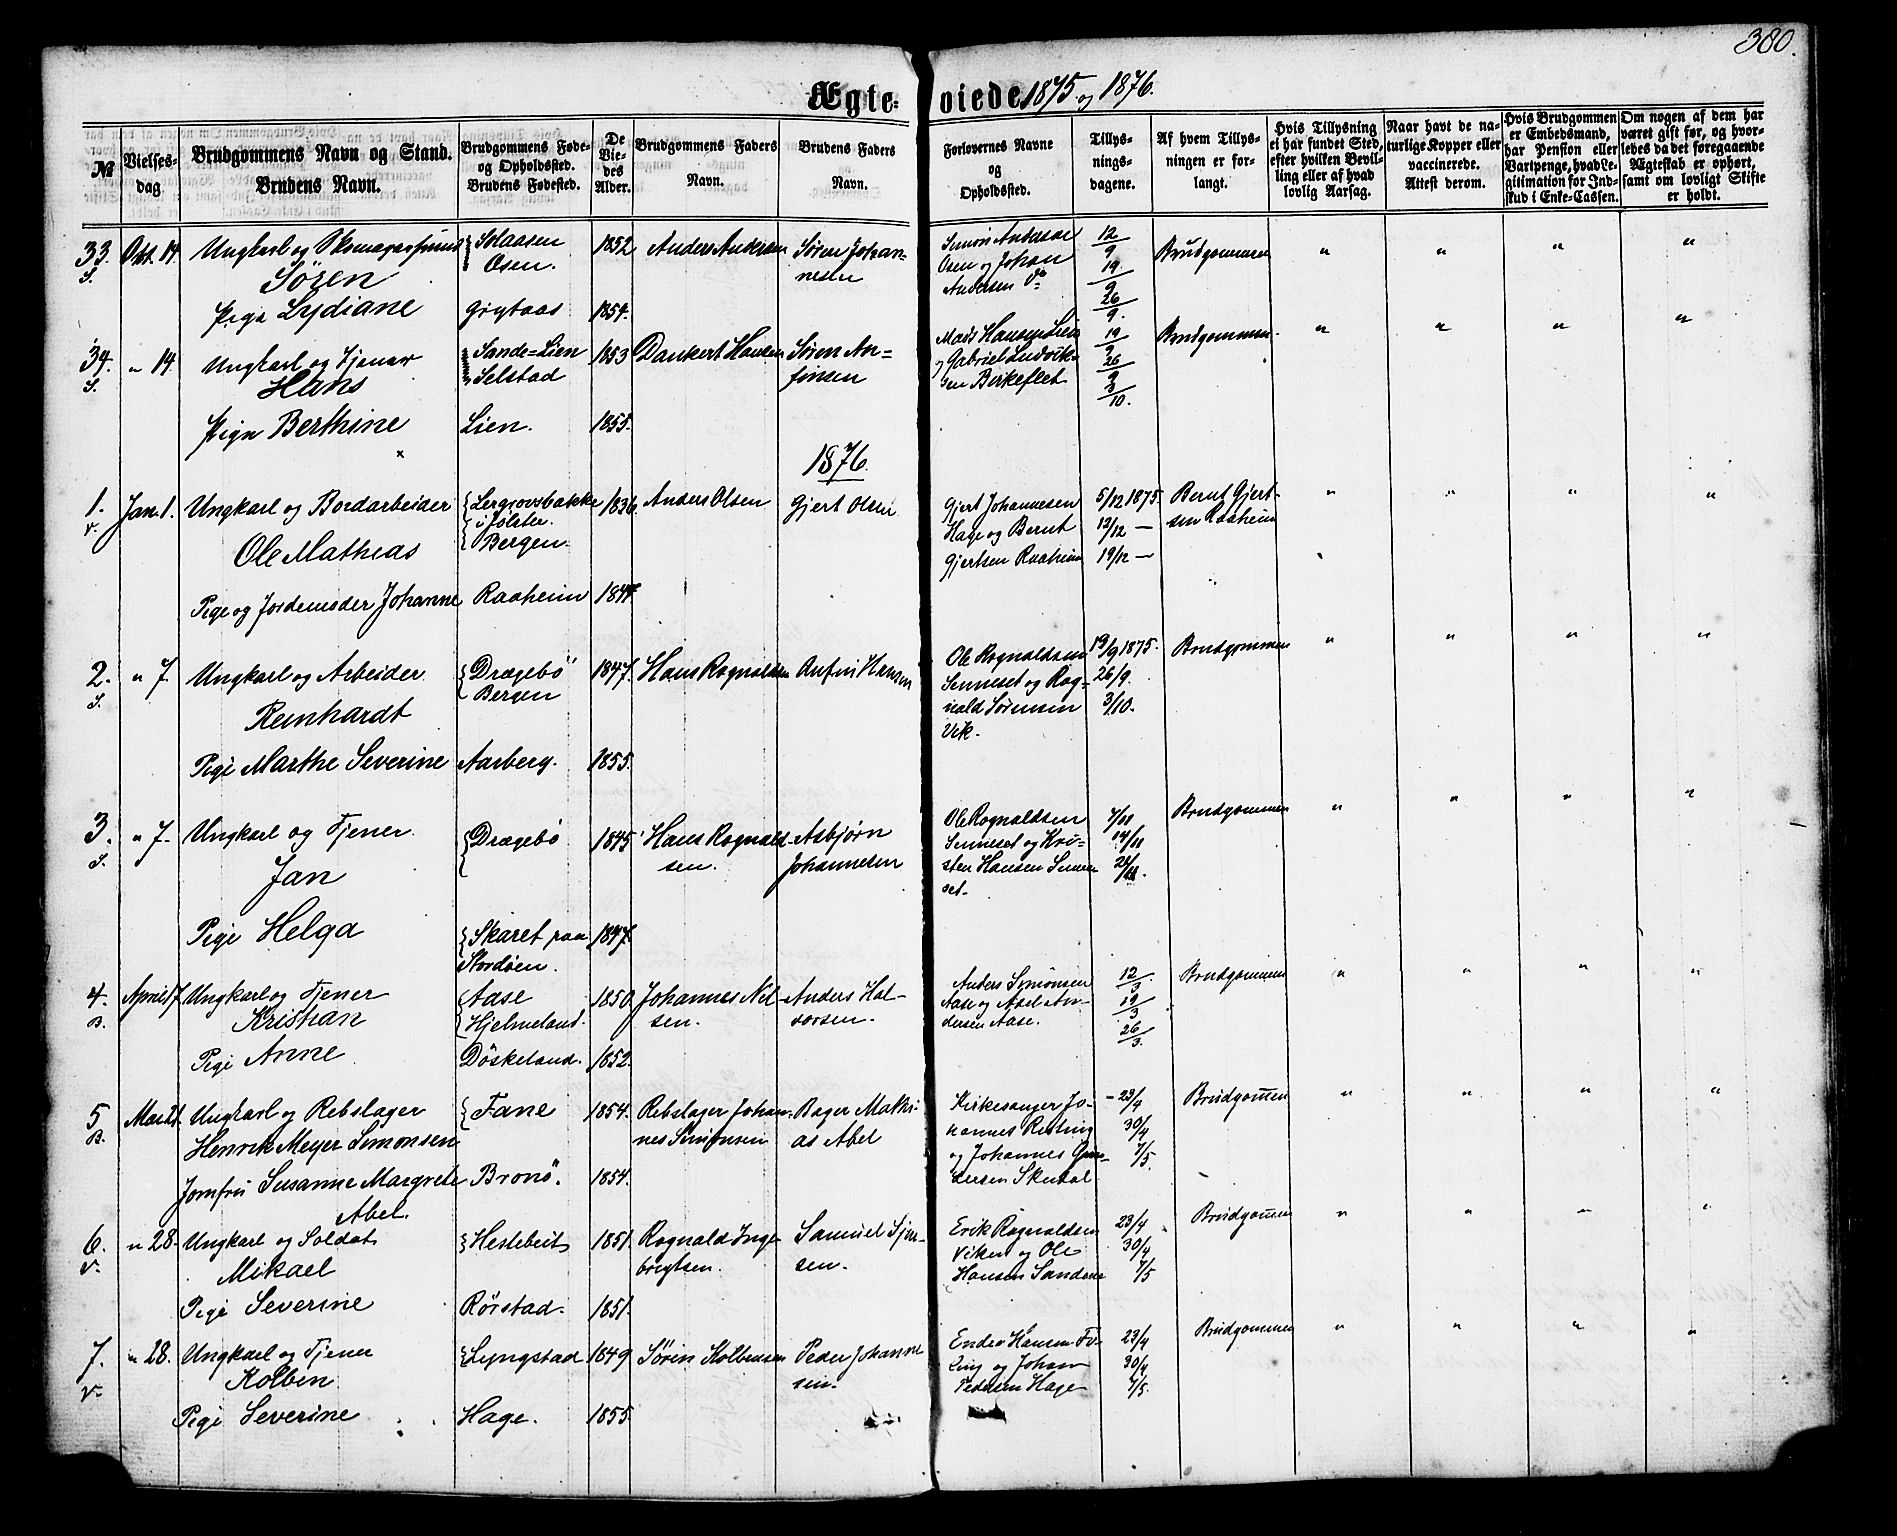 380.
Ægte-viede 1875 og 1876.
№
Vielses-dag
Brudgommens Navn og Stand.
Brudens Navn.
Brudgommens Føde-
og Opholdssted.
Brudens Fødested.
De
Vie-
des
Alder.
Brudgommens Faders
Navn.
Brudens Faders
Navn.
Forlovernes Navne
og
Opholdssted.
Tillys-
nings-
dagene.
Af hvem Tillys-
ningen er for-
langt.
Hvis Tillysning
ei har fundet Sted,
efter hvilken Bevil-
ling eller af hvad
lovlig Aarsag.
Naar havt de na-
turlige Kopper eller
vaccinerede.
Attest derom.
Hvis Brudgommen
er Embedsmand,
har Pension eller
Vartpenge, hvad Le-
gitimation for Ind-
skud i Enke-Cassen.
Om nogen af dem har
været gift før, og hvor-
ledes da det foregaaende
Ægteskab er ophørt,
samt om lovligt Skifte
er holdt.
33. Okt. 14. Ungkarl og Skomagersvend Solaasen 1852 Anders Andersen Søren Johan- Simon Andersen 12/9 Brudgommen " " " "
S. Sören Osen. nesen Osen og Johan 19/9
Andersen do 26/9.
Pige Lydiane Grytaas 1854.
34. " 14. Ungkarl og Tjener Sande=Lien 1853 Dankert Hansen Søren An- Mads Hansen Lien 19/9 Brudgommen. " " " "
S. Hans Selstad finsen og Gabriel Ludvik- 26/9
sen Birkeflet 3/10.
Pige Berthine Lien. 1855.
1876.
1. Jan. 1. Ungkarl og Bordarbeider Lergrovsbakke 1836. Anders Olsen Gjert Olsen Gjert Johannesen 5/12 1875. Bernt Gjert- " " " "
v. i Jølster. Hage og Bernt 12/12 — sen Raaheim
Ole Mathias Bergen. Gjertsen Raaheim 19/12 —
Pige og Jordemoder Johanne Raaheim 1844.
2. " 7. Ungkarl og Arbeider Drægebö 1847. Hans Rognaldsen Anfin Hansen Ole Rognaldsen 19/9 1875. Brudgommen " " " "
S. Bergen Senneset og Rog- 26/9.
Reinhardt nald Sørensen 3/10.
Vik.
Pige Marthe Severine Aarberg. 1855.
3. " 7. Ungkarl og Tjener. Drægebö 1845 Hans Rognald- Asbjørn Ole Rognaldsen 7/11 Brudgommen " " " "
S. sen. Johannesen Senneset og Kri- 14/11
Jan sten Hansen Senne 21/11.
set.
Pige Helga Skaret paa 1847.
Stordöen.
4. April 17. Ungkarl og Tjener Aase 1850. Johannes Nil- Anders Hal- Anders Simonsen 12/3. Brudgommen " " " "
B. Kristian Hjelmeland. sen. vorsen. Aase og Abel An- 19/3
dersen Aase. 26/3.
Pige Anne Döskeland. 1852.
5 Mai 21. Ungkarl og Rebslager Fane 1854. Rebslager Johan- Bager Mathi- Kirkesanger Jo- 23/4 Brudgommen " " " "
B. Henrik Meyer Simonsen nes Simonsen as Abel hannes 30/4
og Johannes 7/5.
Jomfru Susanne Margrete Bronö. 1854.
Abel.
6. " 28. Ungkarl og Soldat Hestebeit 1851. Rognald Inge- Samuel Erik Rognaldsen 23/4 Brudgommen " " " "
v. Mikael brigtsen. sen. Viken og Ole 30/4
Hansen 7/5
Pige Severine Rörstad. 1851.
7. " 28. Ungkarl og Tjener Lyngstad 1849 Sörin Kolbensen Peder Johanne Endre Hansen 23/4 Brudgommen " " " "
v. Kolben sen. og Johan 30/4
Pedersen Hage 7/5.
Pige Severine Hage. 1855.